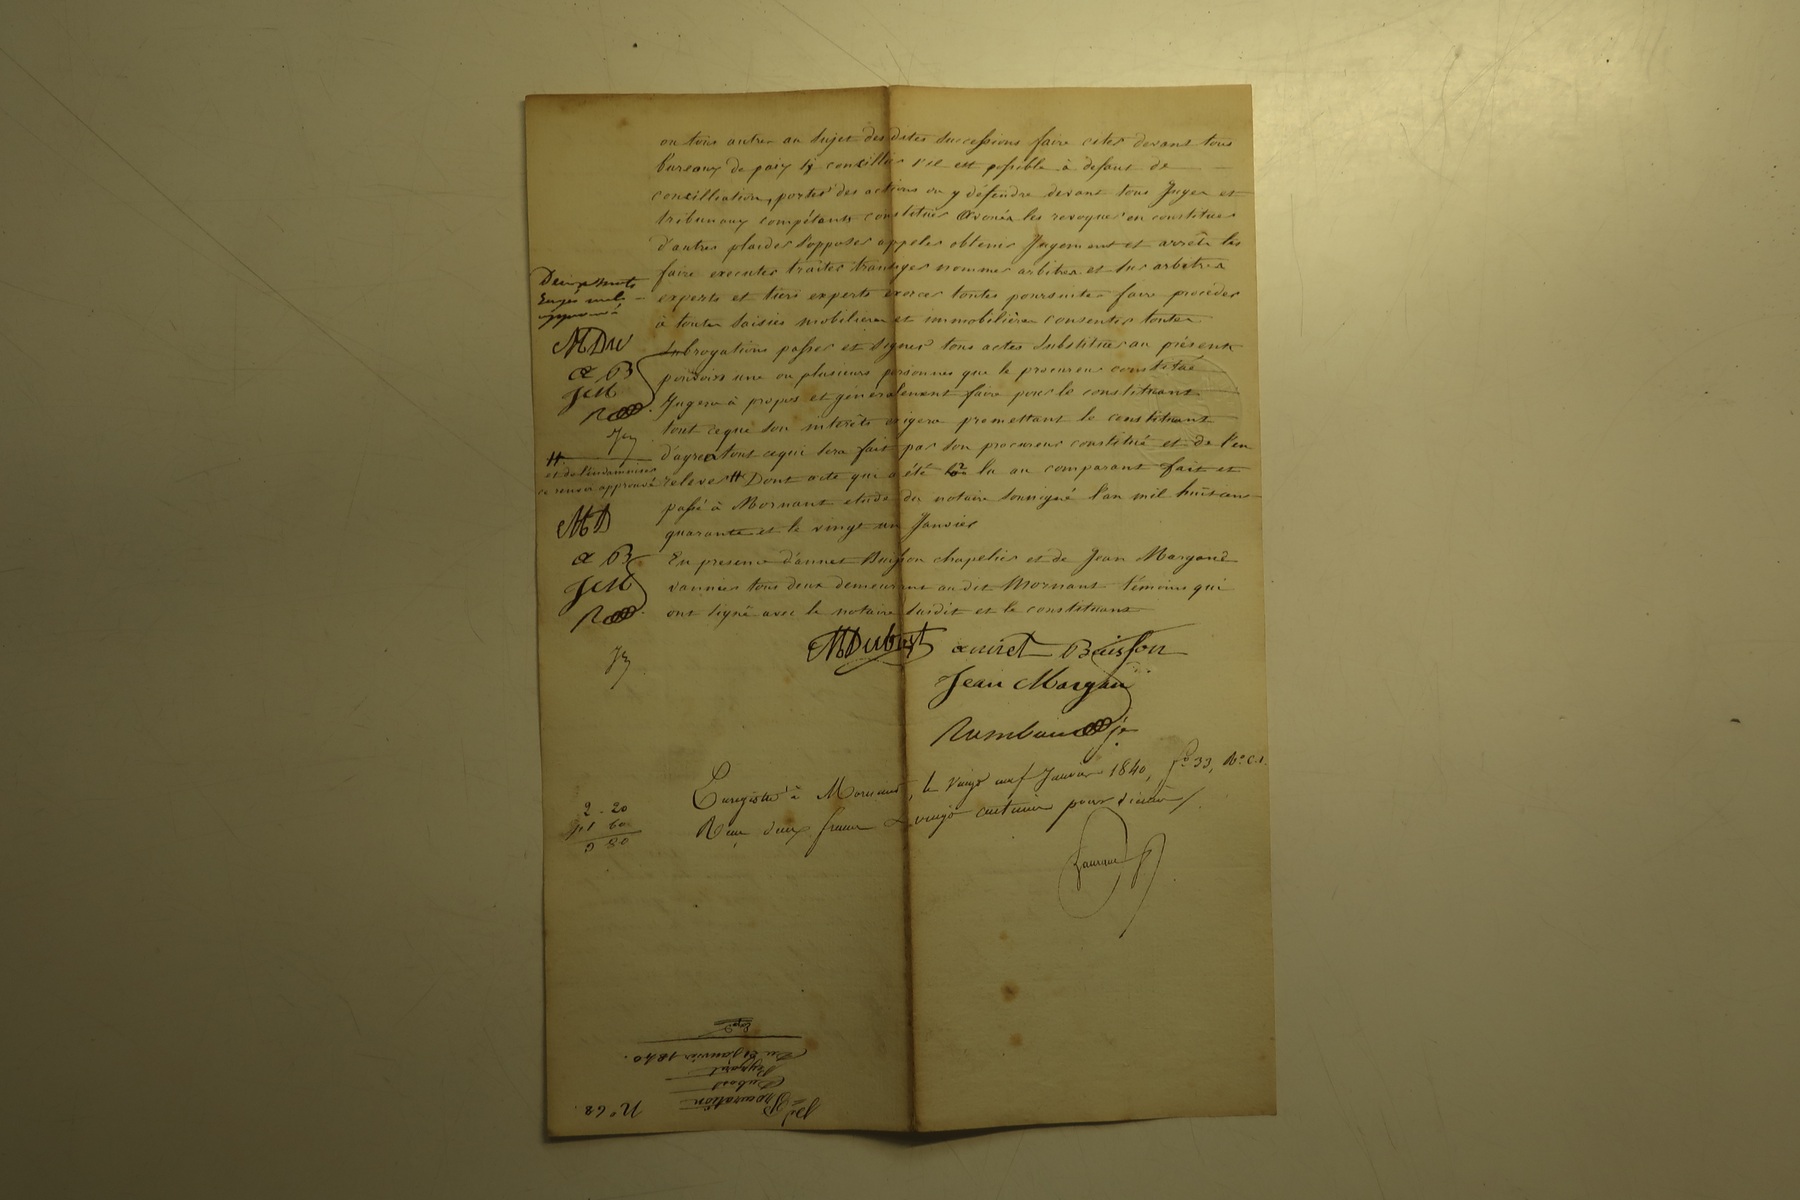 ou tous autres au sujet des dites successions faire citer devant tous
bureaux de paix s'y concillier s'il est possible à defaut de
concilliation, porter des actions ou y défendre devant tous Juges et
tribunaux compétants constituer avoués les revoquer en constituer
d'autres plaider s'opposer appeler obtenir Jugement et arrêts les
faire executer traiter transiger nommer arbitres et sur arbitres
experts et tiers experts exercer toutes poursuites faire proceder
à toutes saisies mobilières et immobilières consentir toutes
subrogations passer et signer tous actes substituer au présent
pouvoirs une ou plusieurs personnes que le procureur constitué
Jugera à propos et généralement faire pour le constituant
tout ceque son intérêts exigera promettant le constituant
d'agréer tout cequi sera fait par son procureur constitué et de l'en
relever # Dont acte qui a été lu au comparant fait et
passé à Mornant etude du notaire soussigné l'an mil huit cent
quarante et le vingt un Janvier
En presence d'annet Buisson chapelier et de Jean Margand
vannier tous deux demeurant au dit Mornant témoins qui
ont signé avec le notaire susdit et le constituant
approuvé
MDu
a B
JcM
#
et de l'indamniser
ce renvoi approuvé
MD
a B
JcM
MDubost annet Buisson
Jean Margan
Enregistré à Mornant, le vingt neuf Janvier 1840, f° 33, R° C. 1.
Reçu deux francs & vingt centimes pour dixième
2 . 20
1 60
3 80
N° 62.
Procuration
Dubost
Du 21 Janvier 1840.